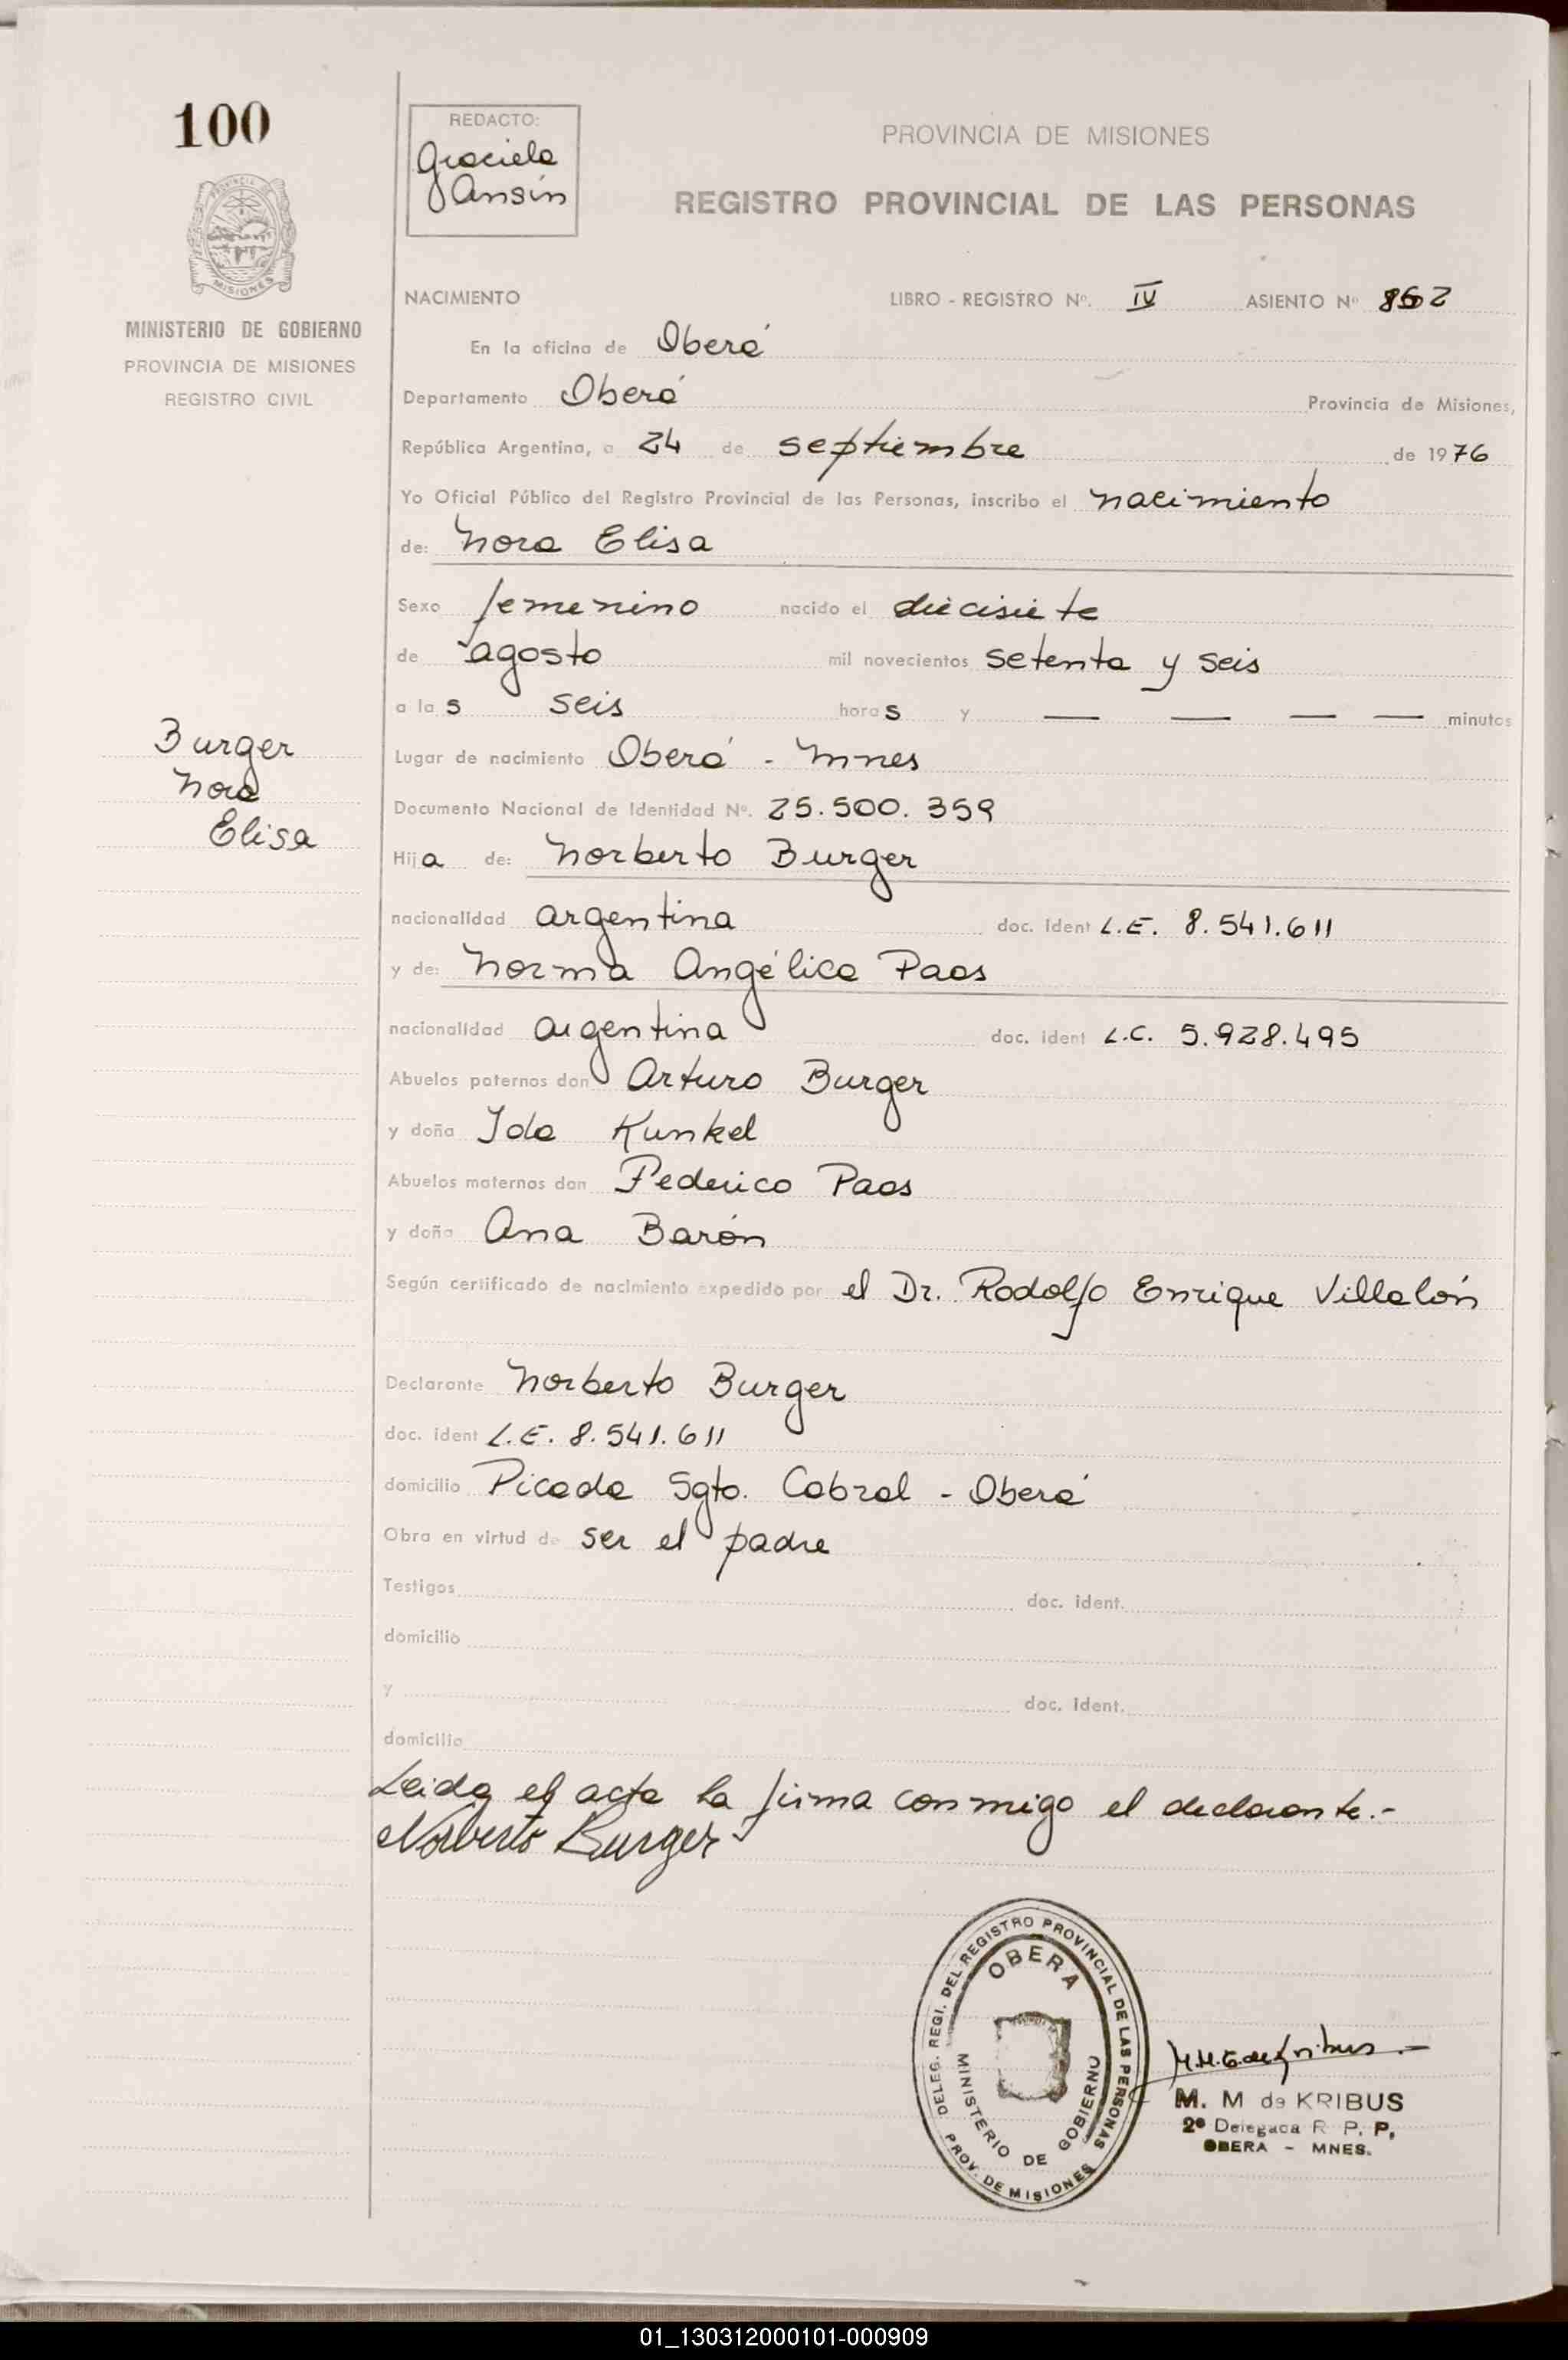 100
REDACTO:
Graciela
Ansín
PROVINCIA DE MISIONES
REGISTRO PROVINCIAL DE LAS PERSONAS
PROVINCIA DE
MISIONES
MINISTERIO DE GOBIERNO
PROVINCIA DE MISIONES
REGISTRO CIVIL
NACIMIENTO LIBRO - REGISTRO Nº. IV ASIENTO Nº 862
En la oficina de Oberá
Departamento Oberá Provincia de Misiones,
República Argentina, a 24 de septiembre de 1976
Yo Oficial Público del Registro Provincial de las Personas, inscribo el nacimiento
de: Nora Elisa
Sexo femenino nacido el diecisiete
de agosto mil novecientos setenta y seis
a las seis horas y — — — — minutos
Burger
Nora
Elisa
Lugar de nacimiento Oberá - Mnes
Documento Nacional de Identidad Nº. 25.500.359
Hija de: Norberto Burger
nacionalidad argentina doc. ident L.E. 8.541.611
y de: Norma Angélica Paos
nacionalidad argentina doc. ident L.C. 5.928.495
Abuelos paternos don Arturo Burger
y doña Ida Kunkel
Abuelos maternos don Federico Paos
y doña Ana Barón
Según certificado de nacimiento expedido por el Dr. Rodolfo Enrique Villalón
Declarante Norberto Burger
doc. ident L.E. 8.541.611
domicilio Picada Sgto. Cabral - Oberá
Obra en virtud de ser el padre
Testigos doc. ident.
domicilio
y doc. ident.
domicilio
Leida el acta la firma conmigo el declarante.-
Norberto Burger
DELEG. REGI. DEL REGISTRO PROVINCIAL DE LAS PERSONAS
OBERA
MINISTERIO DE GOBIERNO
PROV. DE MISIONES
M. M de KRIBUS
2ª Delegada R. P. P.
OBERA - MNES.
01_130312000101-000909